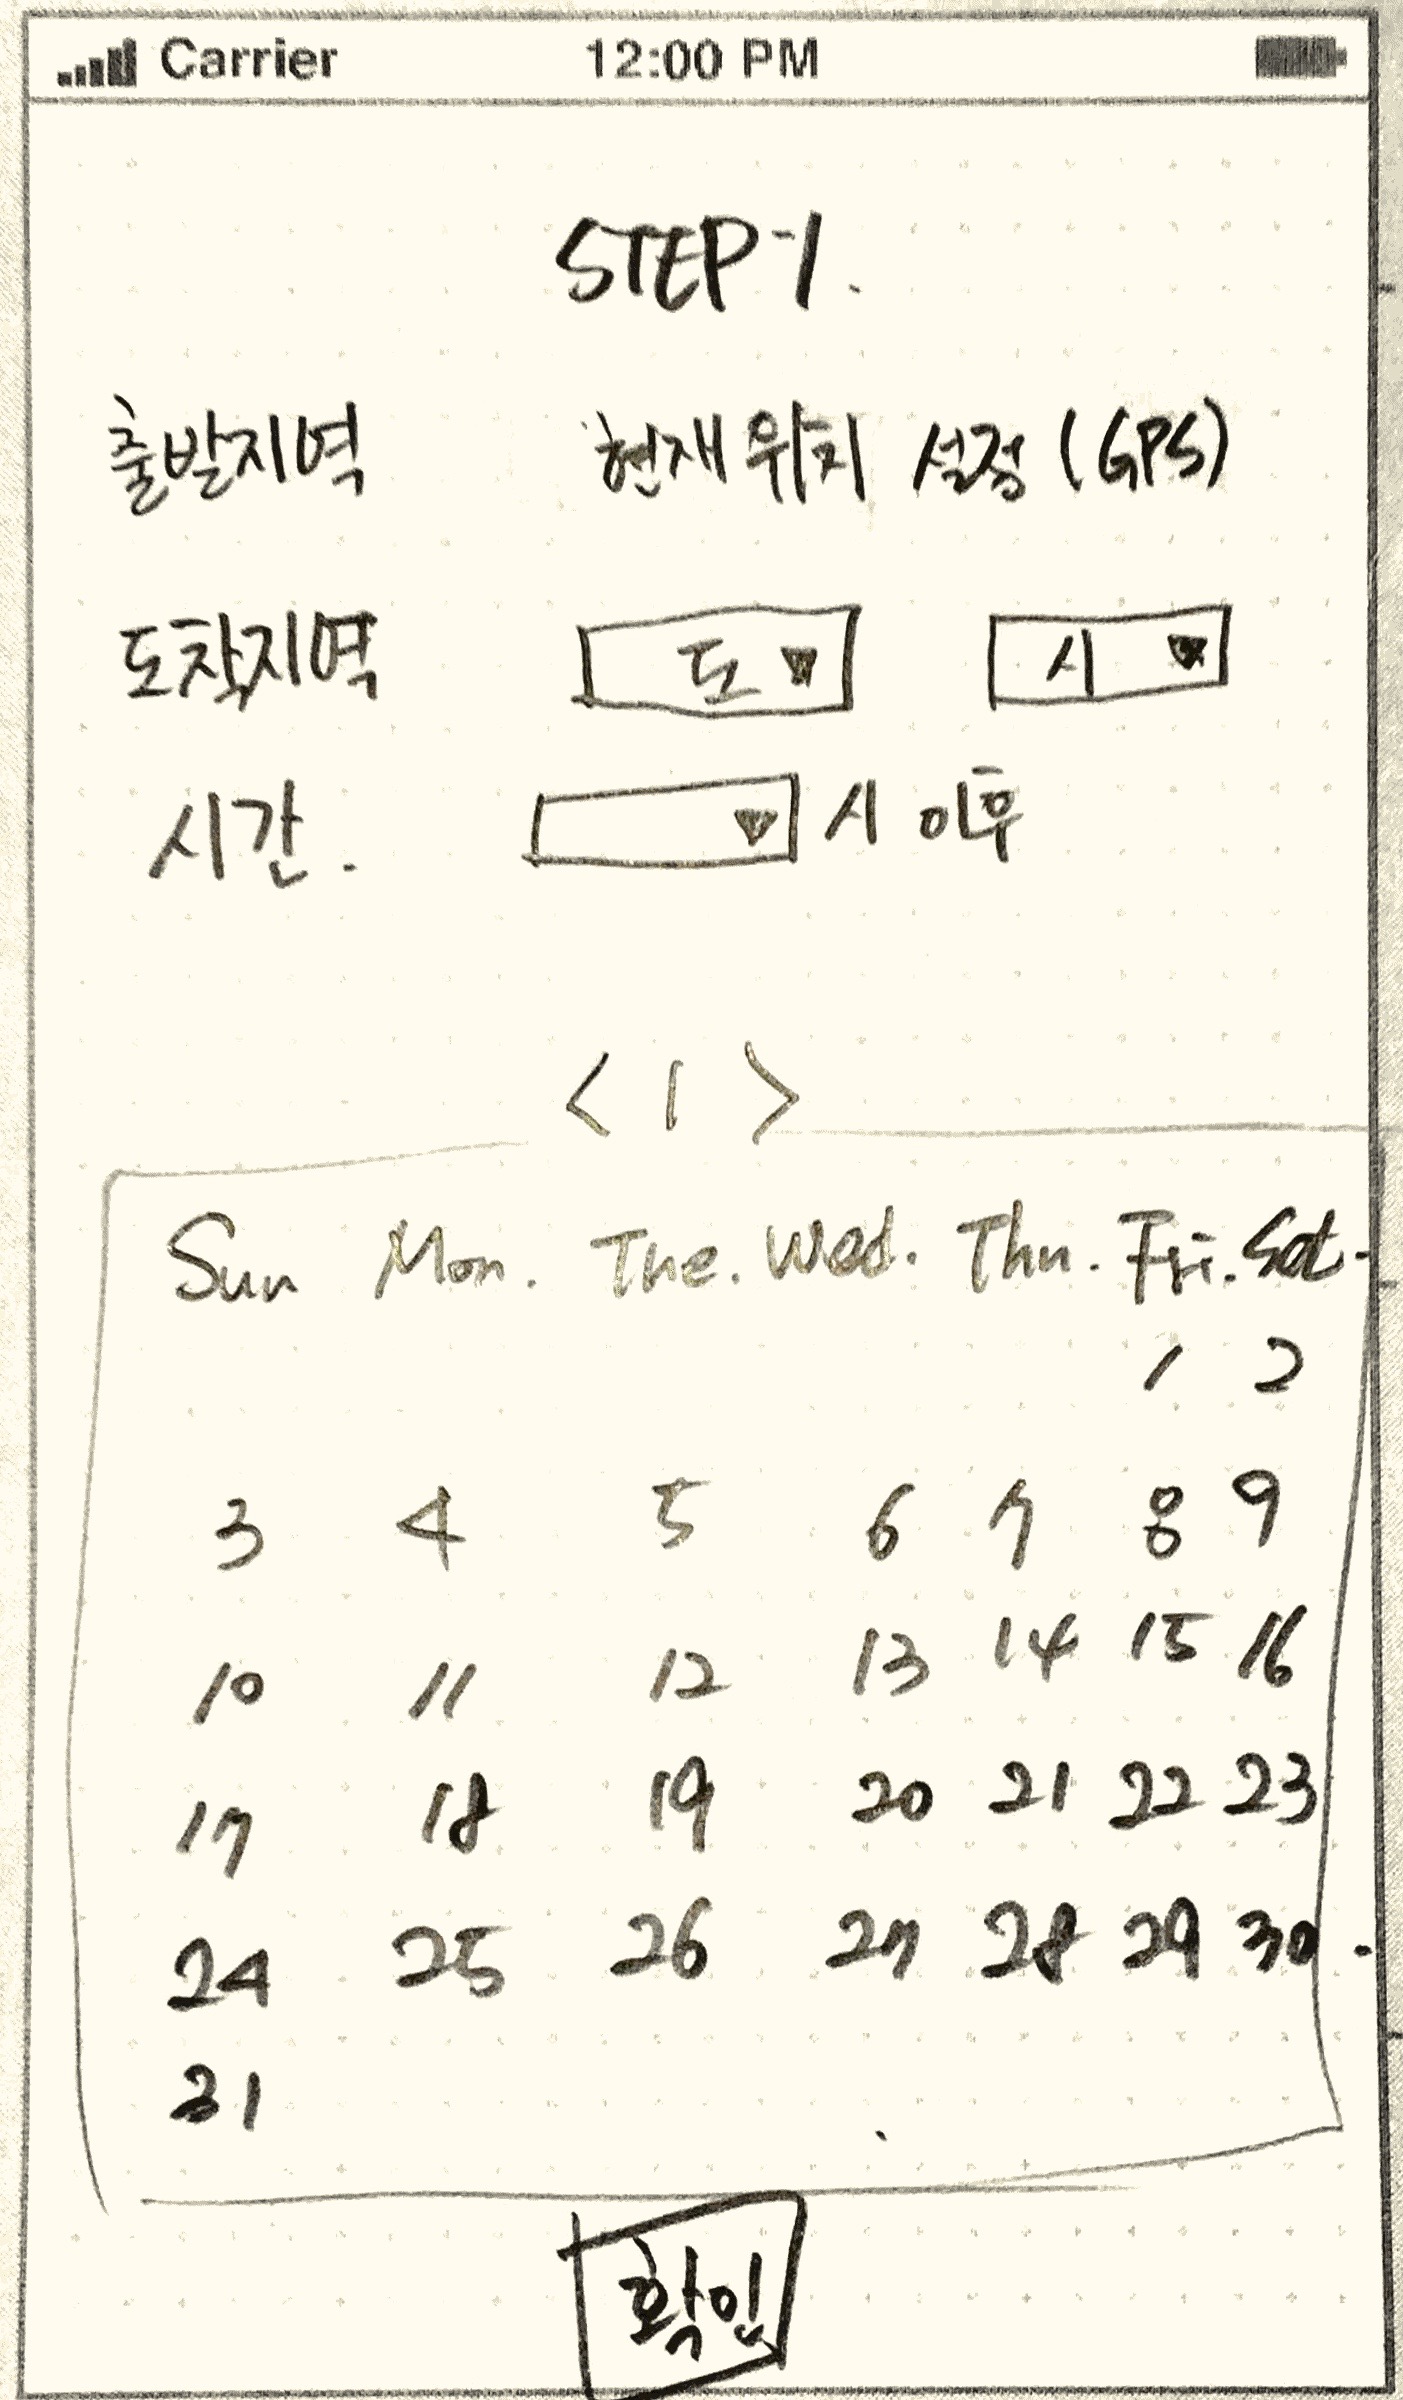 Carrier 12:00 PM
STEP-1.
출발지역 현재위치 설정 (GPS)
도착지역 도 시
시간. 시 이후
< 1 >
Sun Mon. Tue. Wed. Thu. Fri. Sat.
1 2
3 4 5 6 7 8 9
10 11 12 13 14 15 16
17 18 19 20 21 22 23
24 25 26 27 28 29 30.
31
확인